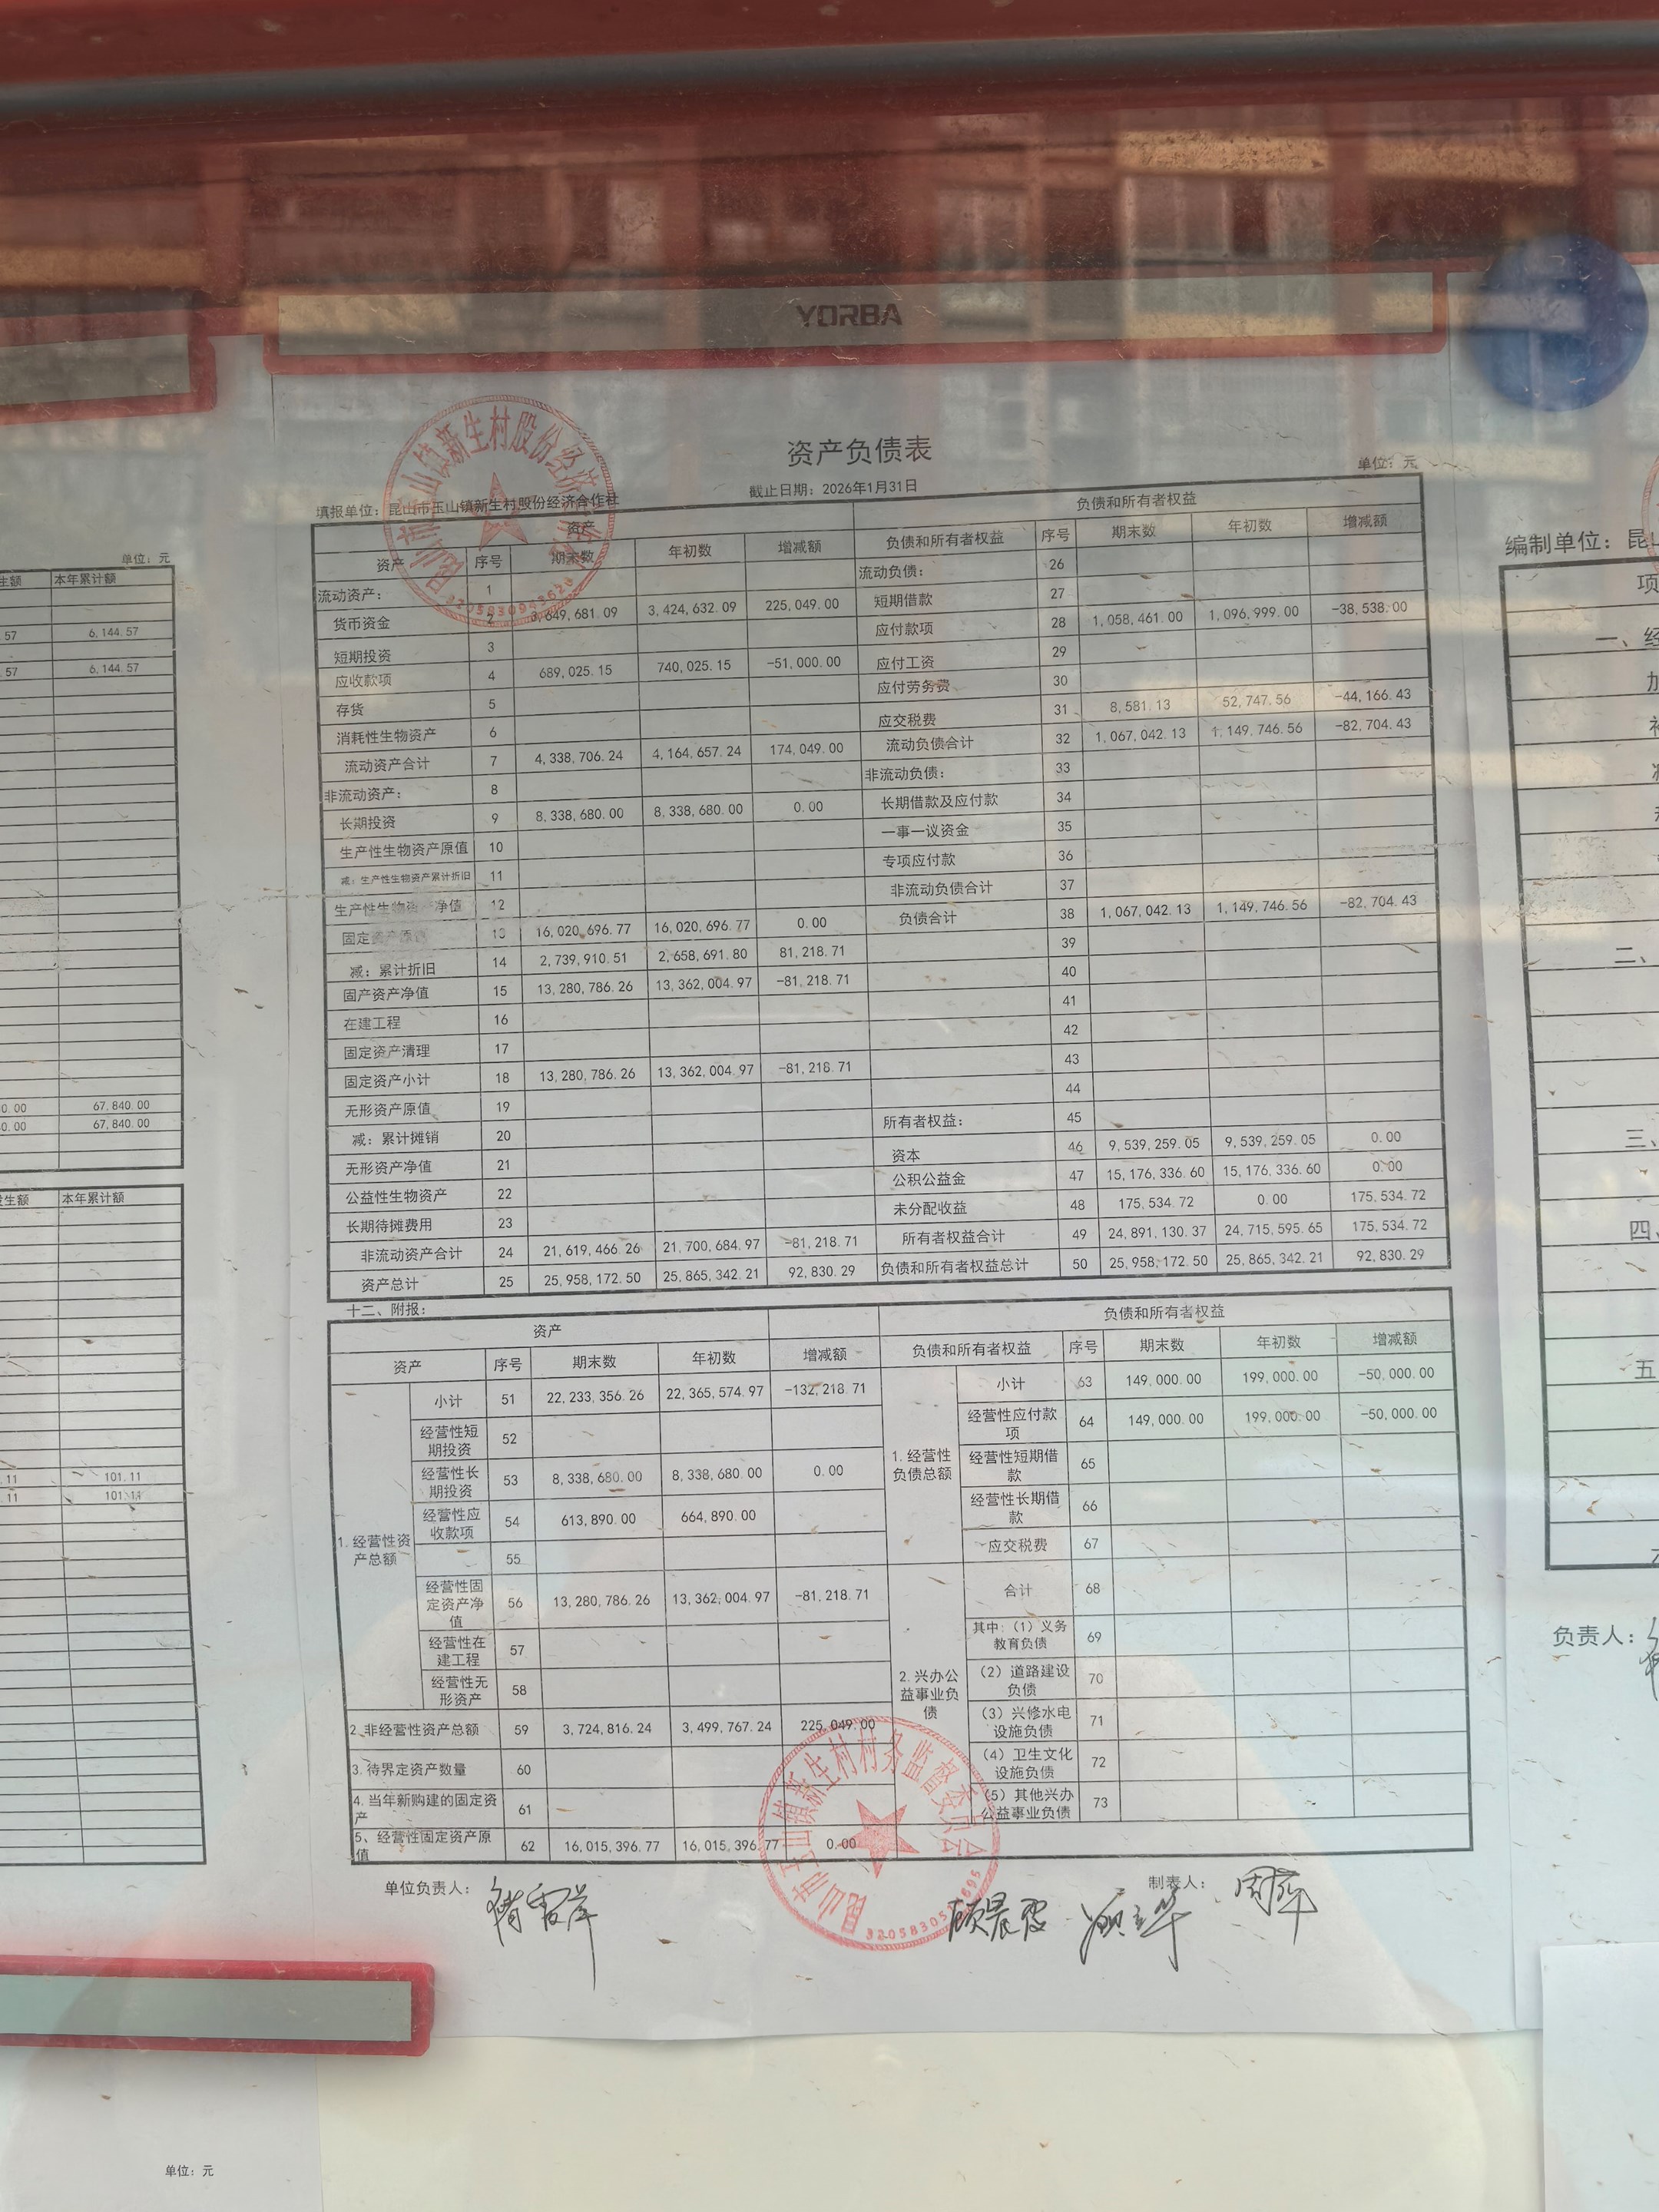 YORBA
资产负债表
截止日期：2026年1月31日
单位：元
填报单位：昆山市玉山镇新生村股份经济合作社
资产 负债和所有者权益
资产 序号 期末数 年初数 增减额 负债和所有者权益 序号 期末数 年初数 增减额
流动资产： 1 流动负债： 26
货币资金 2 3,649,681.09 3,424,632.09 225,049.00 短期借款 27
短期投资 3 应付款项 28 1,058,461.00 1,096,999.00 -38,538.00
应收款项 4 689,025.15 740,025.15 -51,000.00 应付工资 29
存货 5 应付劳务费 30
消耗性生物资产 6 应交税费 31 8,581.13 52,747.56 -44,166.43
流动资产合计 7 4,338,706.24 4,164,657.24 174,049.00 流动负债合计 32 1,067,042.13 1,149,746.56 -82,704.43
非流动资产： 8 非流动负债： 33
长期投资 9 8,338,680.00 8,338,680.00 0.00 长期借款及应付款 34
生产性生物资产原值 10 一事一议资金 35
减：生产性生物资产累计折旧 11 专项应付款 36
生产性生物资产净值 12 非流动负债合计 37
固定资产原值 13 16,020,696.77 16,020,696.77 0.00 负债合计 38 1,067,042.13 1,149,746.56 -82,704.43
减：累计折旧 14 2,739,910.51 2,658,691.80 81,218.71 39
固产资产净值 15 13,280,786.26 13,362,004.97 -81,218.71 40
在建工程 16 41
固定资产清理 17 42
固定资产小计 18 13,280,786.26 13,362,004.97 -81,218.71 43
无形资产原值 19 44
减：累计摊销 20 所有者权益： 45
无形资产净值 21 资本 46 9,539,259.05 9,539,259.05 0.00
公益性生物资产 22 公积公益金 47 15,176,336.60 15,176,336.60 0.00
长期待摊费用 23 未分配收益 48 175,534.72 0.00 175,534.72
非流动资产合计 24 21,619,466.26 21,700,684.97 -81,218.71 所有者权益合计 49 24,891,130.37 24,715,595.65 175,534.72
资产总计 25 25,958,172.50 25,865,342.21 92,830.29 负债和所有者权益总计 50 25,958,172.50 25,865,342.21 92,830.29
十二、附报：
资产 负债和所有者权益
资产 序号 期末数 年初数 增减额 负债和所有者权益 序号 期末数 年初数 增减额
1.经营性资产总额 小计 51 22,233,356.26 22,365,574.97 -132,218.71 1.经营性负债总额 小计 63 149,000.00 199,000.00 -50,000.00
经营性短期投资 52 经营性应付款项 64 149,000.00 199,000.00 -50,000.00
经营性长期投资 53 8,338,680.00 8,338,680.00 0.00 经营性短期借款 65
经营性应收款项 54 613,890.00 664,890.00 经营性长期借款 66
55 应交税费 67
经营性固定资产净值 56 13,280,786.26 13,362,004.97 -81,218.71 2.兴办公益事业负债 合计 68
经营性在建工程 57 其中：（1）义务教育负债 69
经营性无形资产 58 （2）道路建设负债 70
2.非经营性资产总额 59 3,724,816.24 3,499,767.24 225,049.00 （3）兴修水电设施负债 71
3.待界定资产数量 60 （4）卫生文化设施负债 72
4.当年新购建的固定资产 61 （5）其他兴办公益事业负债 73
5、经营性固定资产原值 62 16,015,396.77 16,015,396.77 0.00
单位负责人： 制表人：
昆山市玉山镇新生村股份经济合作社
昆山市玉山镇新生村村务监督委员会
单位：元
生额 本年累计额
57 6,144.57
57 6,144.57
0.00 67,840.00
0.00 67,840.00
生额 本年累计额
.11 101.11
.11 101.11
单位：元
编制单位：昆山
项
一、经
加
减
二、
三、
四、
五
负责人：